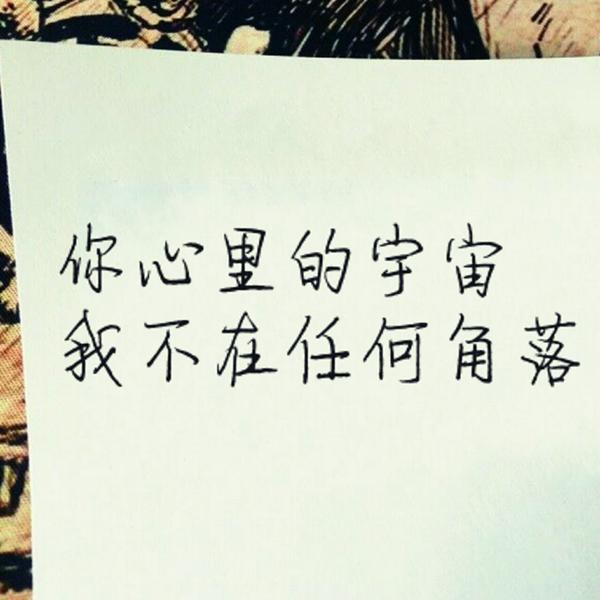 你心里的宇宙
我不在任何角落